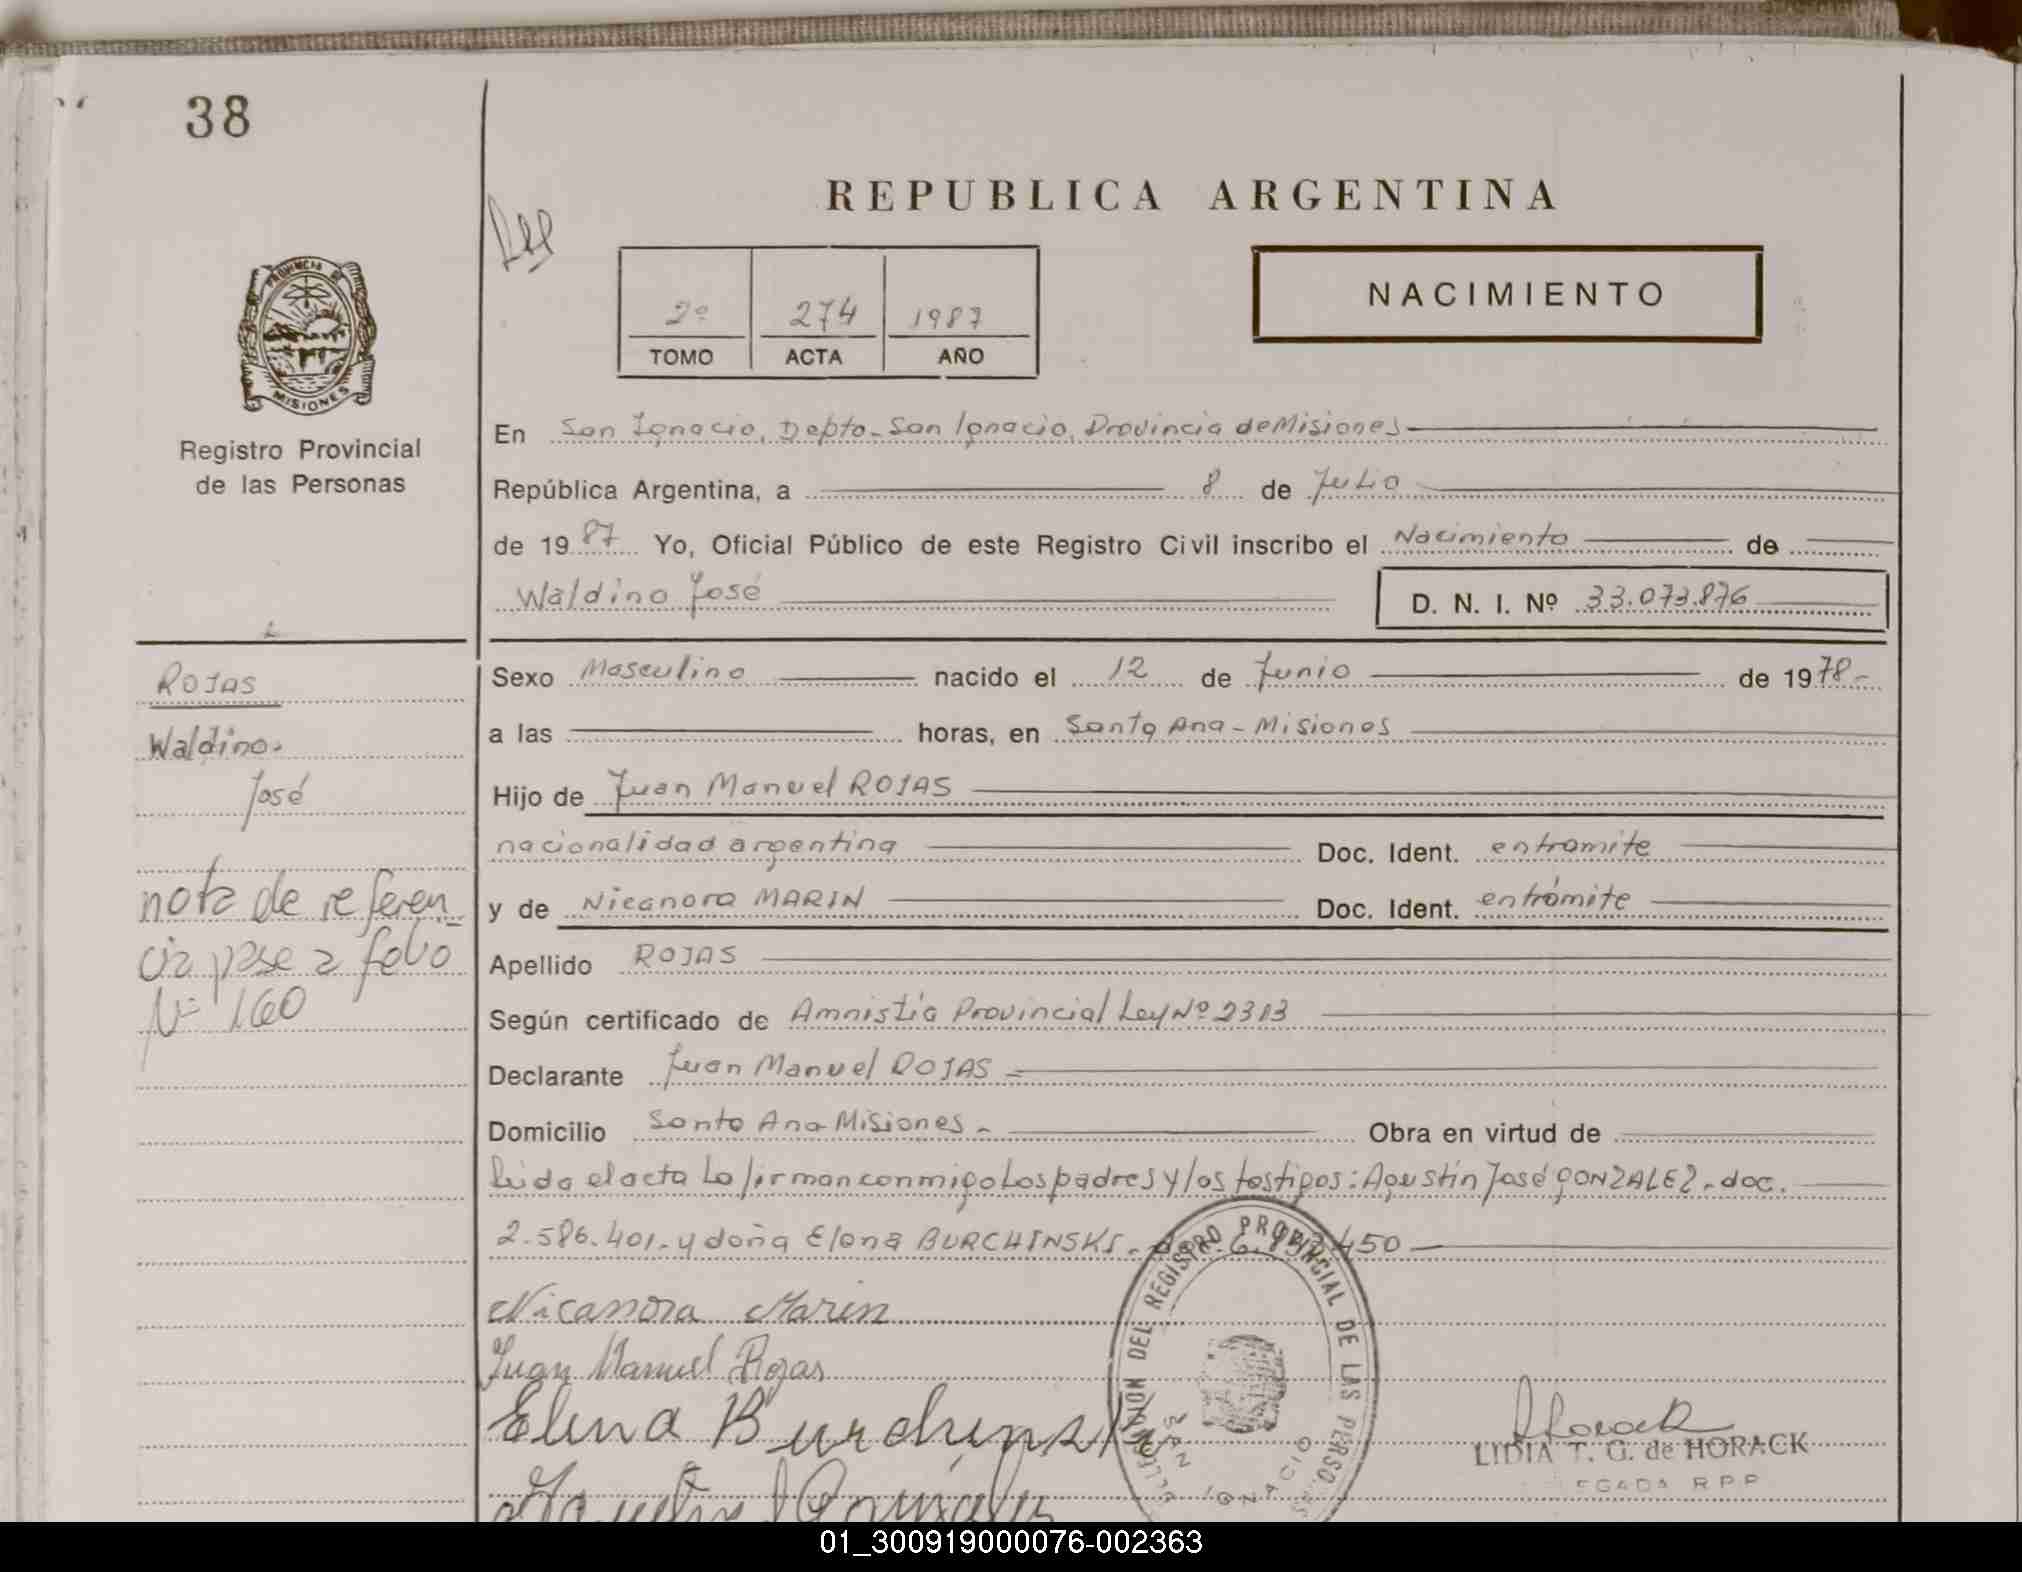 38
REPUBLICA ARGENTINA
PROVINCIA DE
MISIONES
Registro Provincial
de las Personas
2º 274 1987
TOMO ACTA AÑO
NACIMIENTO
En San Ignacio, Depto. San Ignacio, Provincia de Misiones
República Argentina, a 8 de Julio
de 1987 Yo, Oficial Público de este Registro Civil inscribo el Nacimiento de
Waldino José D. N. I. Nº 33.073.876
ROJAS
Waldino.
José
nota de referen
cia pase a folio
Nº 160
Sexo Masculino nacido el 12 de Junio de 1978-
a las horas, en Santa Ana - Misiones
Hijo de Juan Manuel ROJAS
nacionalidad argentina Doc. Ident. entramite
y de Nicanora MARIN Doc. Ident. entrámite
Apellido ROJAS
Según certificado de Amnistía Provincial Ley Nº 2313
Declarante Juan Manuel ROJAS
Domicilio Santa Ana-Misiones- Obra en virtud de
Leida el acta la firman conmigo los padres y los testigos: Agustín José GONZALEZ-doc.
2.586.401- y doña Elena BURCHINSKI- 450
Nicanora Marin
Juan Manuel Rojas
Elena Burchinski
DEL REGISTRO PROVINCIAL DE LAS PERSO
SAN IGNACIO
Horack
LIDIA T. G. de HORACK
EGADA R P P
01_300919000076-002363